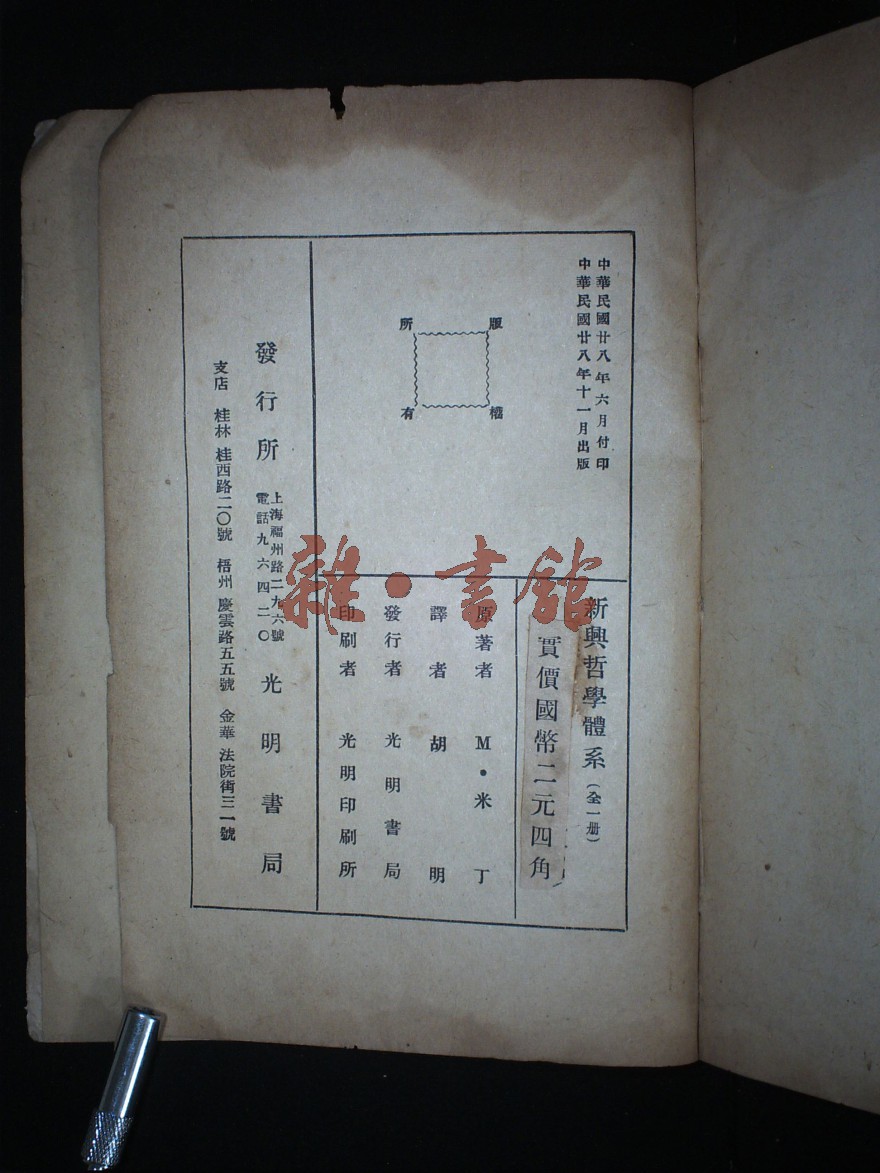 中華民國廿八年六月付印
中華民國廿八年十一月出版
版權所有
新興哲學體系（全一册）
實價國幣二元四角
原著者 M·米丁
譯者 胡明
發行者 光明書局
印刷者 光明印刷所
發行所 上海福州路二九六號 電話九六四二〇 光明書局
支店 桂林 桂西路二〇號 梧州 慶雲路五五號 金華 法院街三一號
雜·書館